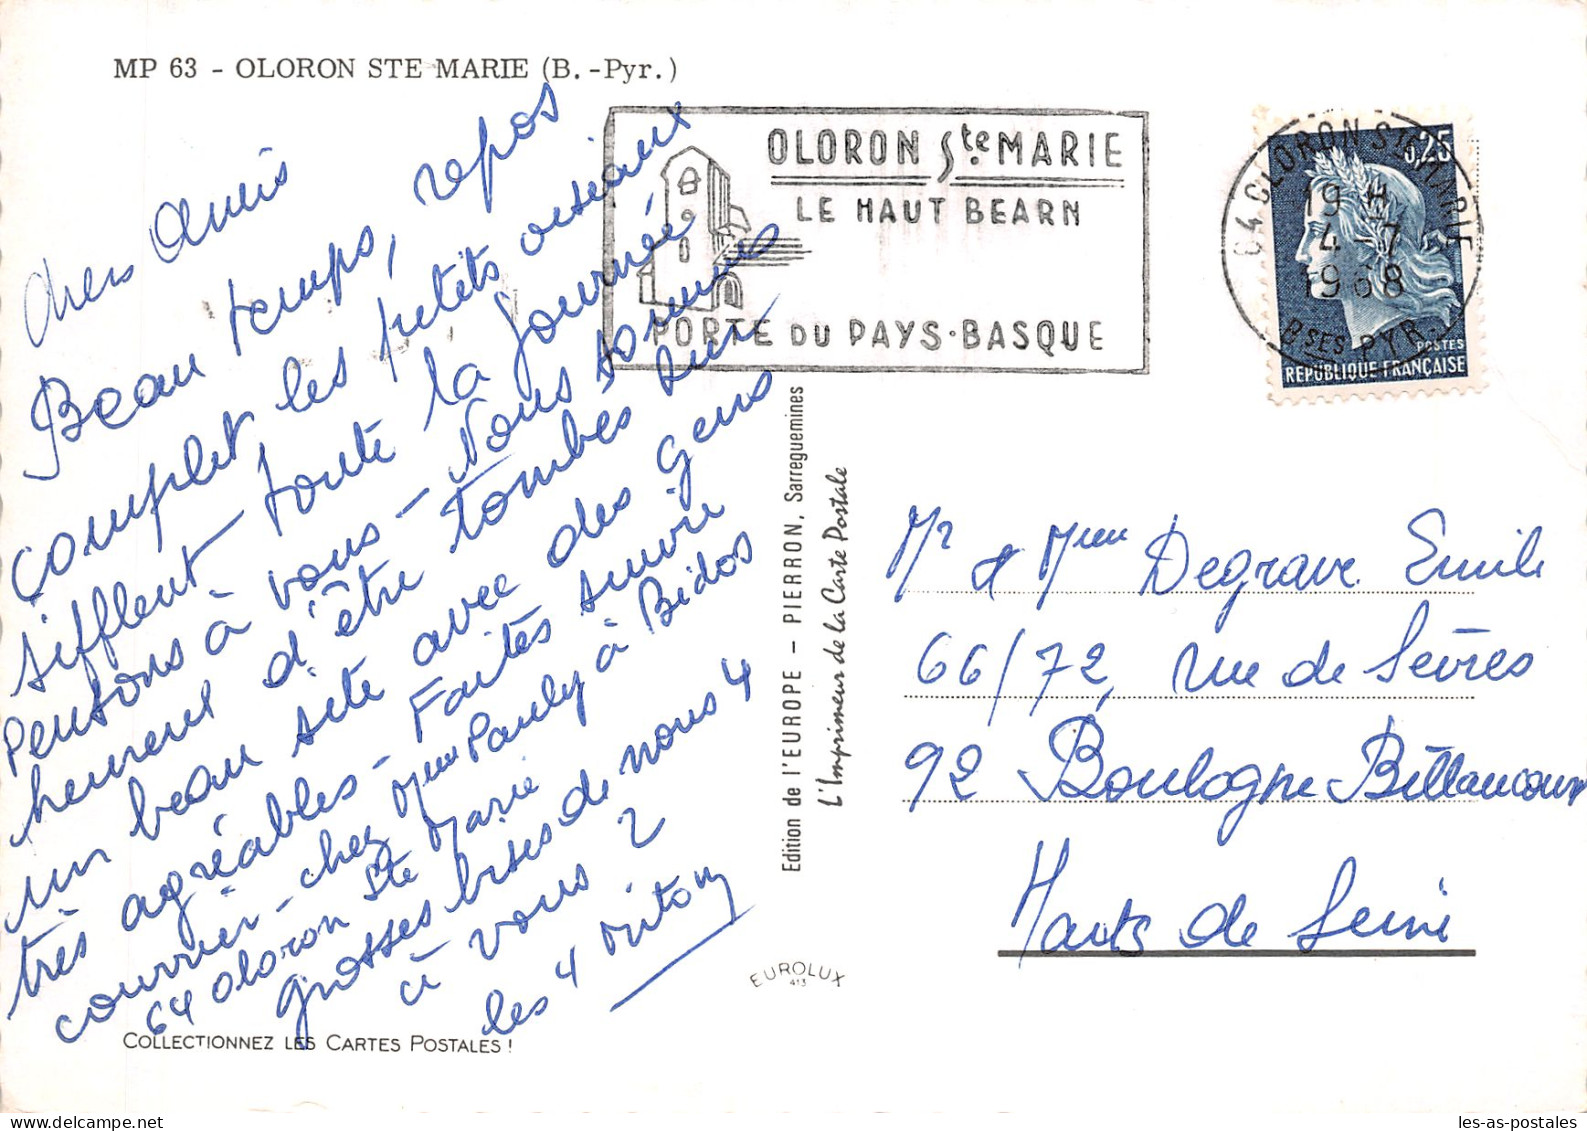 MP 63 - OLORON STE MARIE (B.-Pyr.)
Chers Amis
Beau temps, repos
complet les petits oiseaux
sifflent toute la journée
Pensons à vous - Nous sommes
heureux d'être tombés dans
un beau site avec des gens
très agréables - Faites suivre
courrier - chez Mme Pauly à Bidos
64 Oloron Ste Marie
grosses bises de nous 4
à vous 2
les 4
OLORON Ste MARIE
LE HAUT BEARN
PORTE DU PAYS-BASQUE
64 OLORON Ste MARIE
19 H
4-7
1968
Bses PYR.
0,25
POSTES
REPUBLIQUE FRANÇAISE
Edition de l'EUROPE - PIERRON, Sarreguemines
L'Imprimeur de la Carte Postale
Mr & Mme Degrave Emile
66/72, rue de Sèvres
92 Boulogne Billancourt
Hauts de Seine
EUROLUX
413
COLLECTIONNEZ LES CARTES POSTALES !
les-as-postales